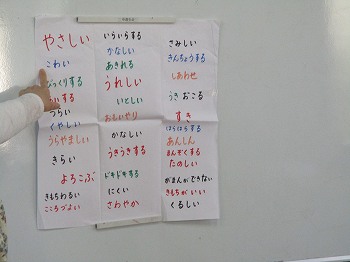 やさしい
こわい
びっくりする
する
つらい
くやしい
うらやましい
きらい
よろこぶ
きもちわるい
こころづよい
いらいらする
かなしい
あきれる
うれしい
いとしい
おもいやり
かなしい
うきうきする
ドキドキする
にくい
さわやか
さみしい
きんちょうする
しあわせ
うき おこる
すき
はらはらする
あんしん
まんぞくする
たのしい
がまんができない
きもちがいい
くるしい